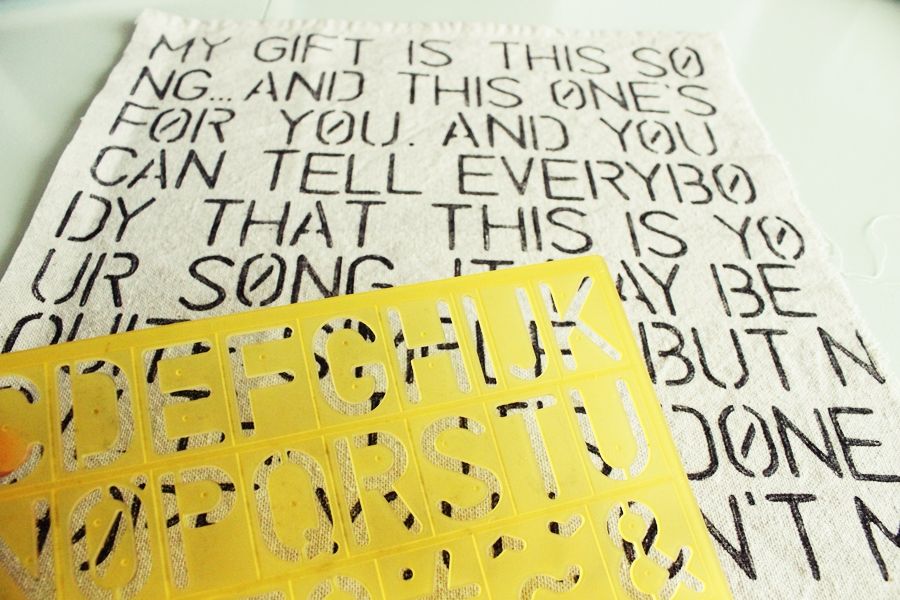 MY GIFT IS THIS SO
NG... AND THIS ONE'S
FOR YOU. AND YOU
CAN TELL EVERYBO
DY THAT THIS IS YO
UR SONG. IT MAY BE
BUT N
DONE
N'T
CDEFGHIJK
NØPQRSTU
&